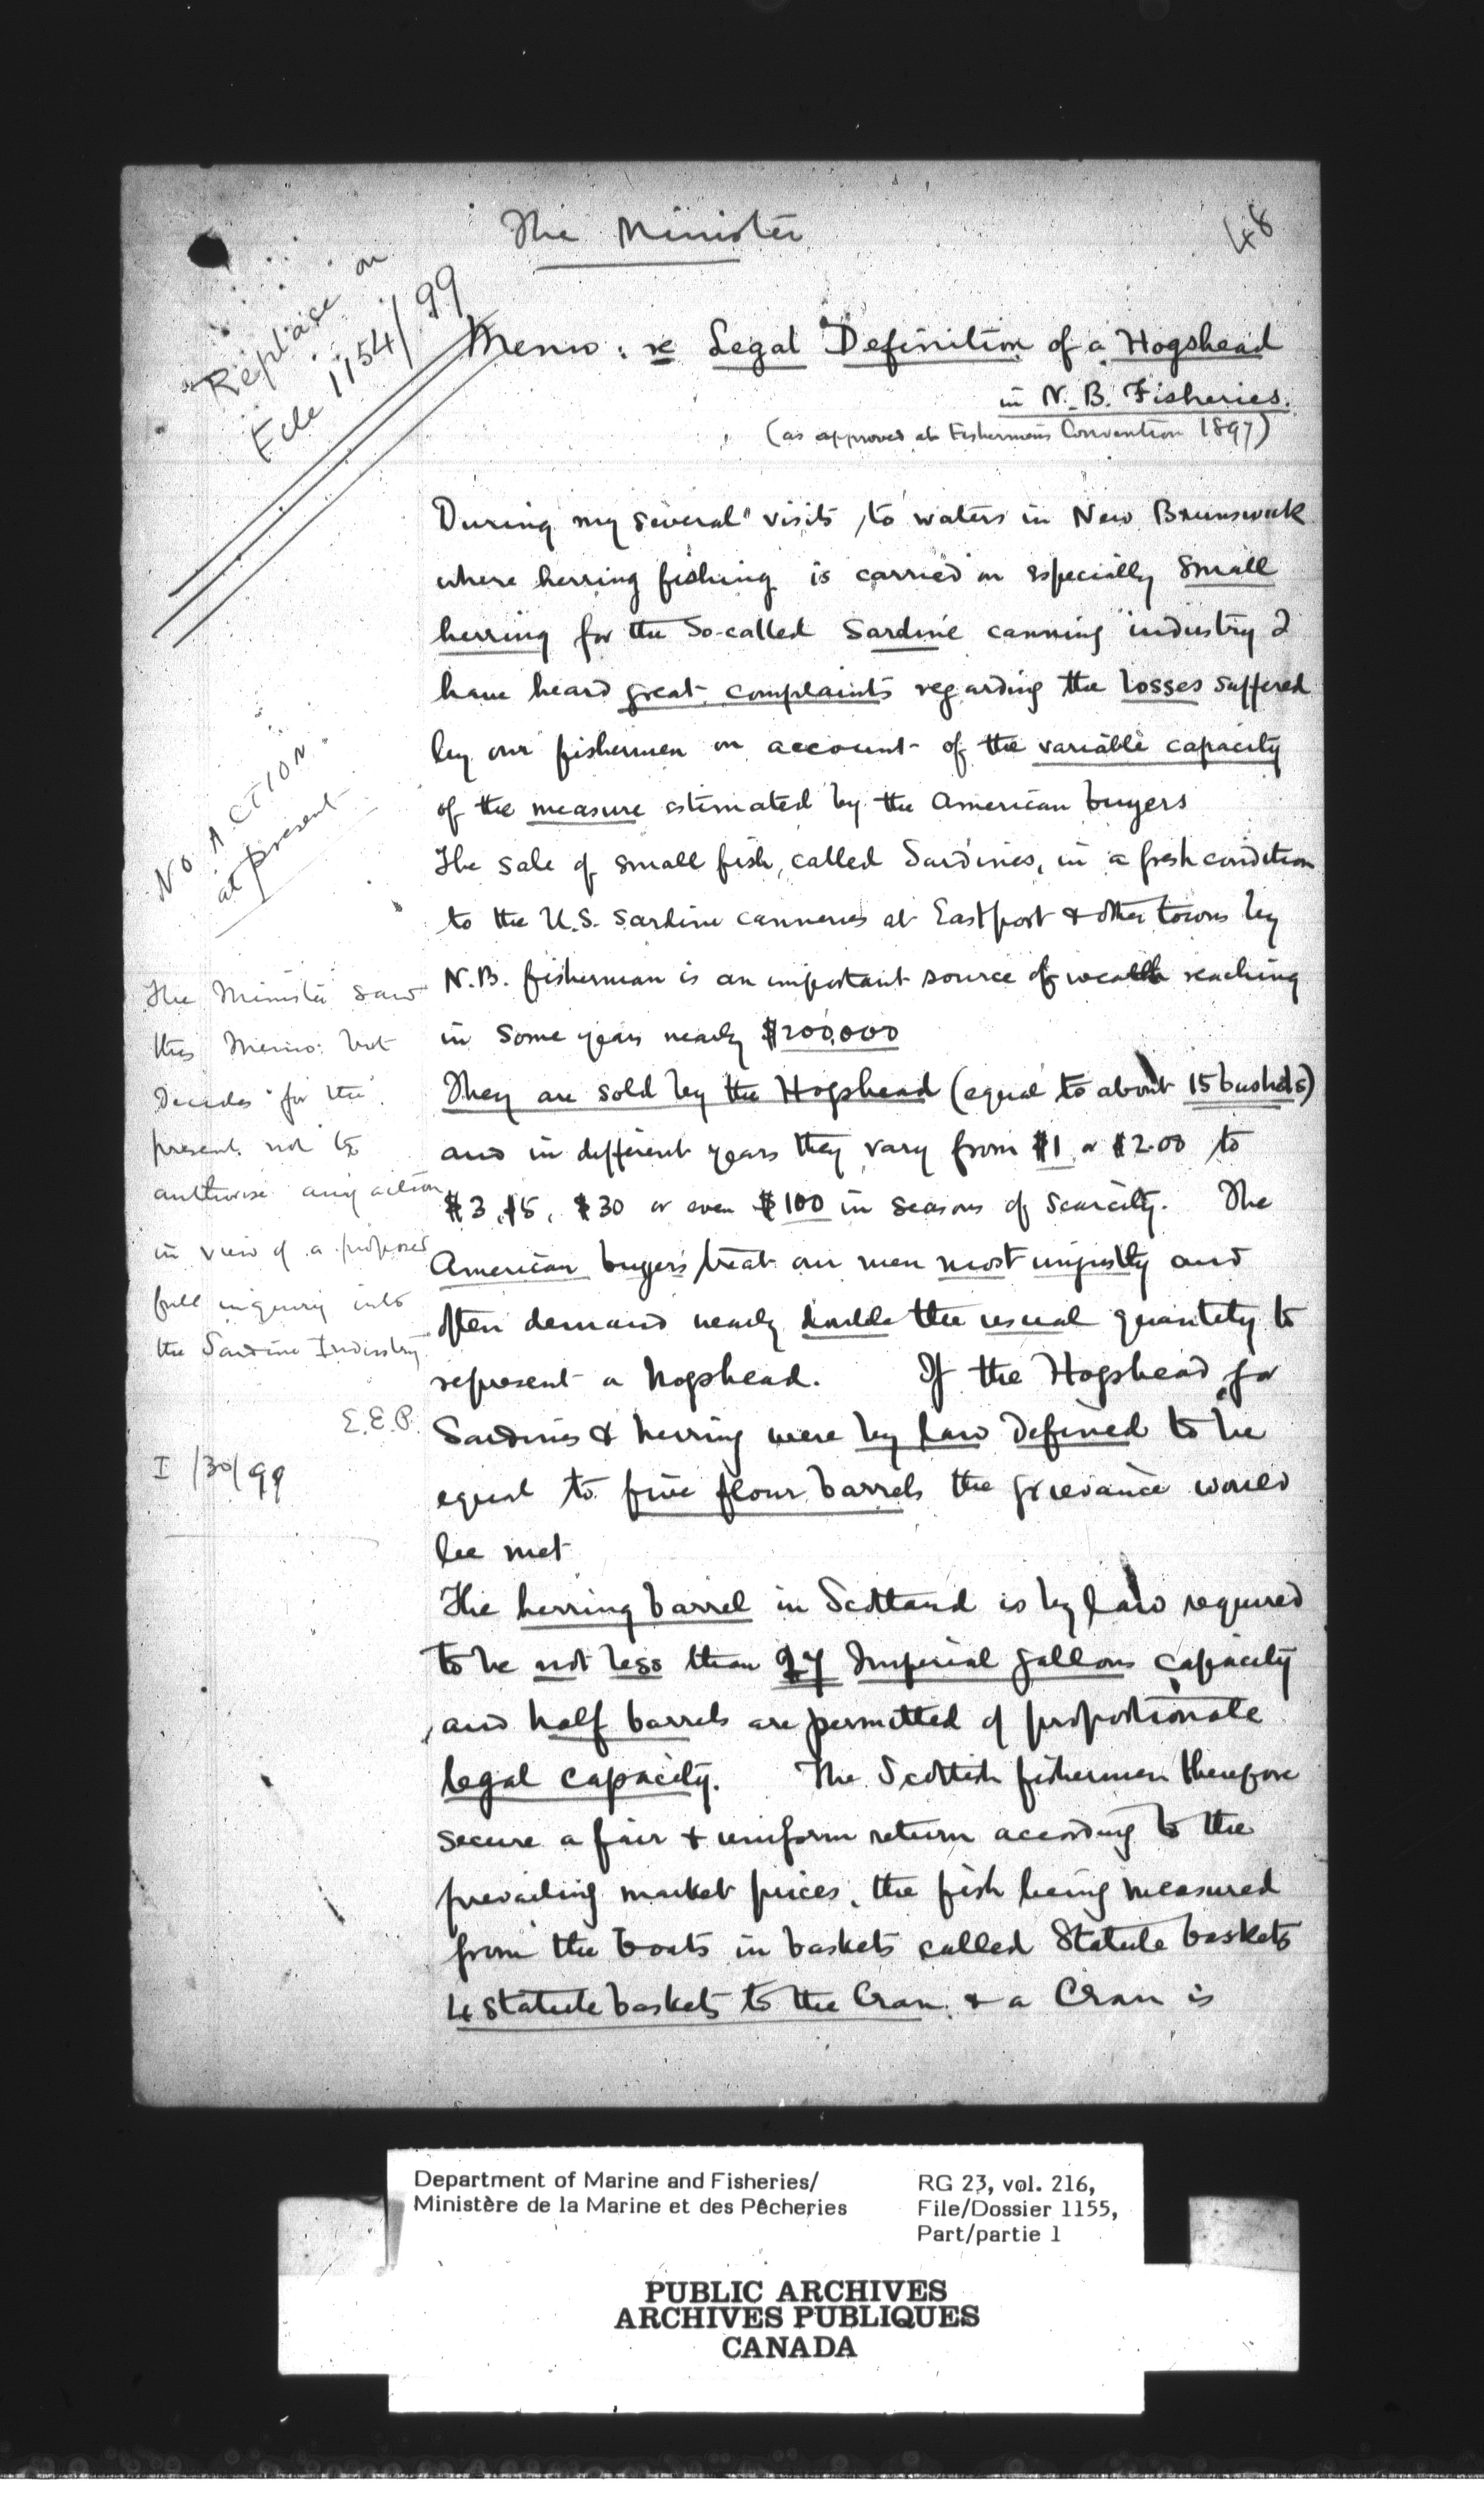 The Minister
48
Replace on
File 1154/99
Memo: re Legal Definition of a Hogshead
in N.B. Fisheries.
(as approved at Fishermen's Convention 1897)
During my several visits to waters in New Brunswick
where herring fishing is carried on especially small
herring for the so-called Sardine canning industry I
have heard great complaints regarding the losses suffered
by our fishermen on account of the variable capacity
of the measure estimated by the American buyers
The sale of small fish, called Sardines, in a fresh condition
to the U.S. Sardine canneries at Eastport & other towns by
N.B. fisherman is an important source of wealth reaching
in some years nearly $200,000
They are sold by the Hogshead (equal to about 15 bushels)
and in different years they vary from $1 or $2.00 to
$3, $5, $30 or even $100 in seasons of scarcity. The
American buyers treat our men most unjustly and
often demand nearly double the usual quantity to
represent a hogshead. If the Hogshead for
Sardines & herring were by law defined to be
equal to five flour barrels the grievance would
be met
The herring barrel in Scotland is by law required
to be not less than 27 Imperial gallons capacity
and half barrels are permitted of proportionate
legal capacity. The Scottish fishermen therefore
secure a fair & uniform return according to the
prevailing market prices, the fish being measured
from the boats in baskets called Statute baskets
4 Statute baskets to the Cran & a Cran is
No ACTION
at present
The Minister saw
this Memo: but
decides for the
present not to
authorise any action
in view of a proposed
full inquiry into
the Sardine Industry
E.E.P.
I/30/99
Department of Marine and Fisheries/
Ministère de la Marine et des Pêcheries
RG 23, vol. 216,
File/Dossier 1155,
Part/partie 1
PUBLIC ARCHIVES
ARCHIVES PUBLIQUES
CANADA